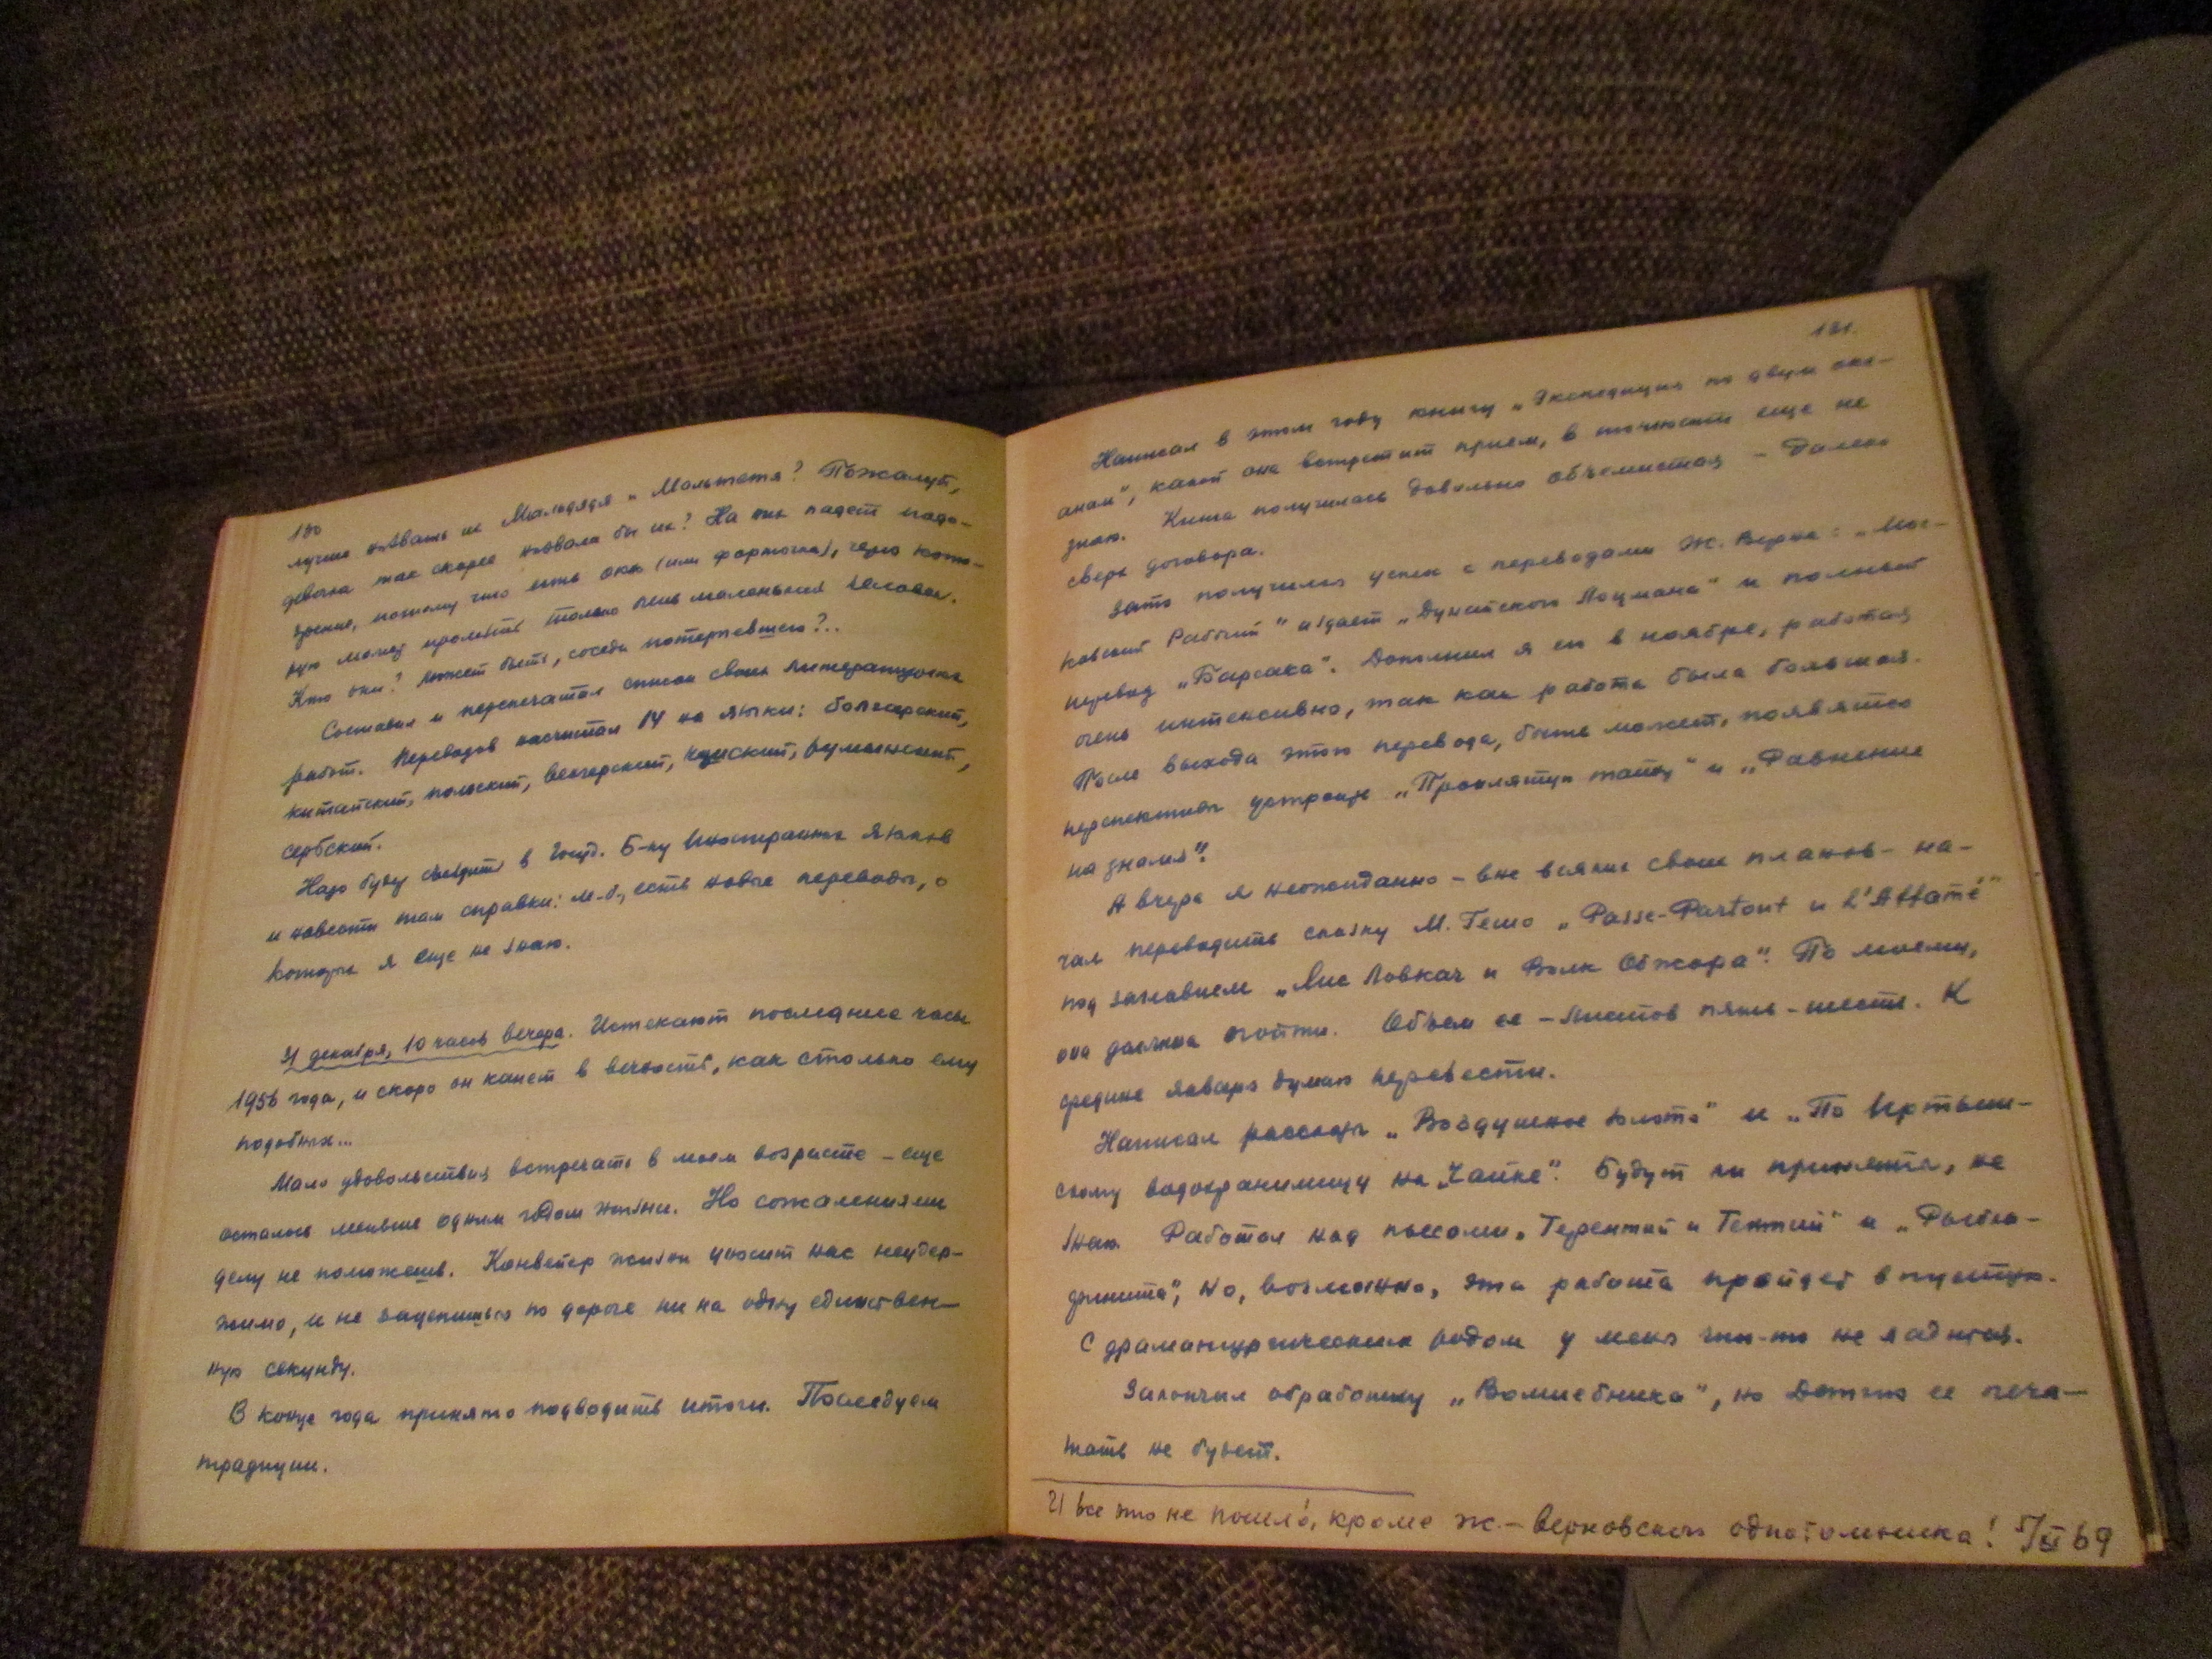 180
лучше назвать их Мальдядя и Мальтетя? Пожалуй,
девочка так скорее назвала бы их? На них падет подо-
зрение, потому что есть окно (или форточка), через кото-
рую может пролезть только очень маленький человек.
Кто они? Может быть, соседи потерпевшего?..
Составил и перепечатал список своих литературных
работ. Переводов насчитал 14 на языки: болгарский,
китайский, польский, венгерский, чешский, румынский,
сербский.
Надо буду съездить в Госуд. Б-ку Иностранных языков
и навести там справки: м.-б., есть новые переводы, о
которых я еще не знаю.
31 декабря, 10 часов вечера. Истекают последние часы
1956 года, и скоро он канет в вечность, как столько ему
подобных...
Мало удовольствия встречать в моем возрасте – еще
осталось меньше одним годом жизни. Но сожалениями
делу не поможешь. Конвейер жизни уносит нас неудер-
жимо, и не зацепишься по дороге ни на одну единствен-
ную секунду.
В конце года принято подводить итоги. Последуем
традиции.
181.
Написал в этом году книгу „Экспедиция по двум оке-
анам", какой она встретит прием, в точности еще не
знаю. Книга получилась довольно объемистая – далеко
сверх договора.
Зато получился успех с переводами Ж. Верна: „Мос-
ковский Рабочий" издает „Дунайского Лоцмана" и полный
перевод „Барсака". Дополнил я его в ноябре, работая
очень интенсивно, так как работа была большая.
После выхода этого перевода, быть может, появятся
перспективы устроить „Проклятую тайну" и „Равнение
на знамя".
А вчера я неожиданно – вне всяких своих планов – на-
чал переводить сказку М. Гемо „Passe-Partout и L'Affamé"
под заглавием „Лис Ловкач и Волк Обжора". По моему,
она должна пойти. Объем ее – листов пять-шесть. К
средине января думаю перевести.
Написал рассказы „Воздушное золото" и „По Иртыш-
скому водохранилищу на „Чайке". Будут ли приняты, не
знаю. Работал над пьесами „Терентий и Тентий" и „Рыбка-
финита", но, возможно, эта работа пройдет впустую.
С драматургическим родом у меня что-то не ладится.
Закончил обработку „Волшебника", но Детгиз ее печа-
тать не будет.
2) Все это не пошло, кроме Ж.-Верновского однотомника! 5/XI 69